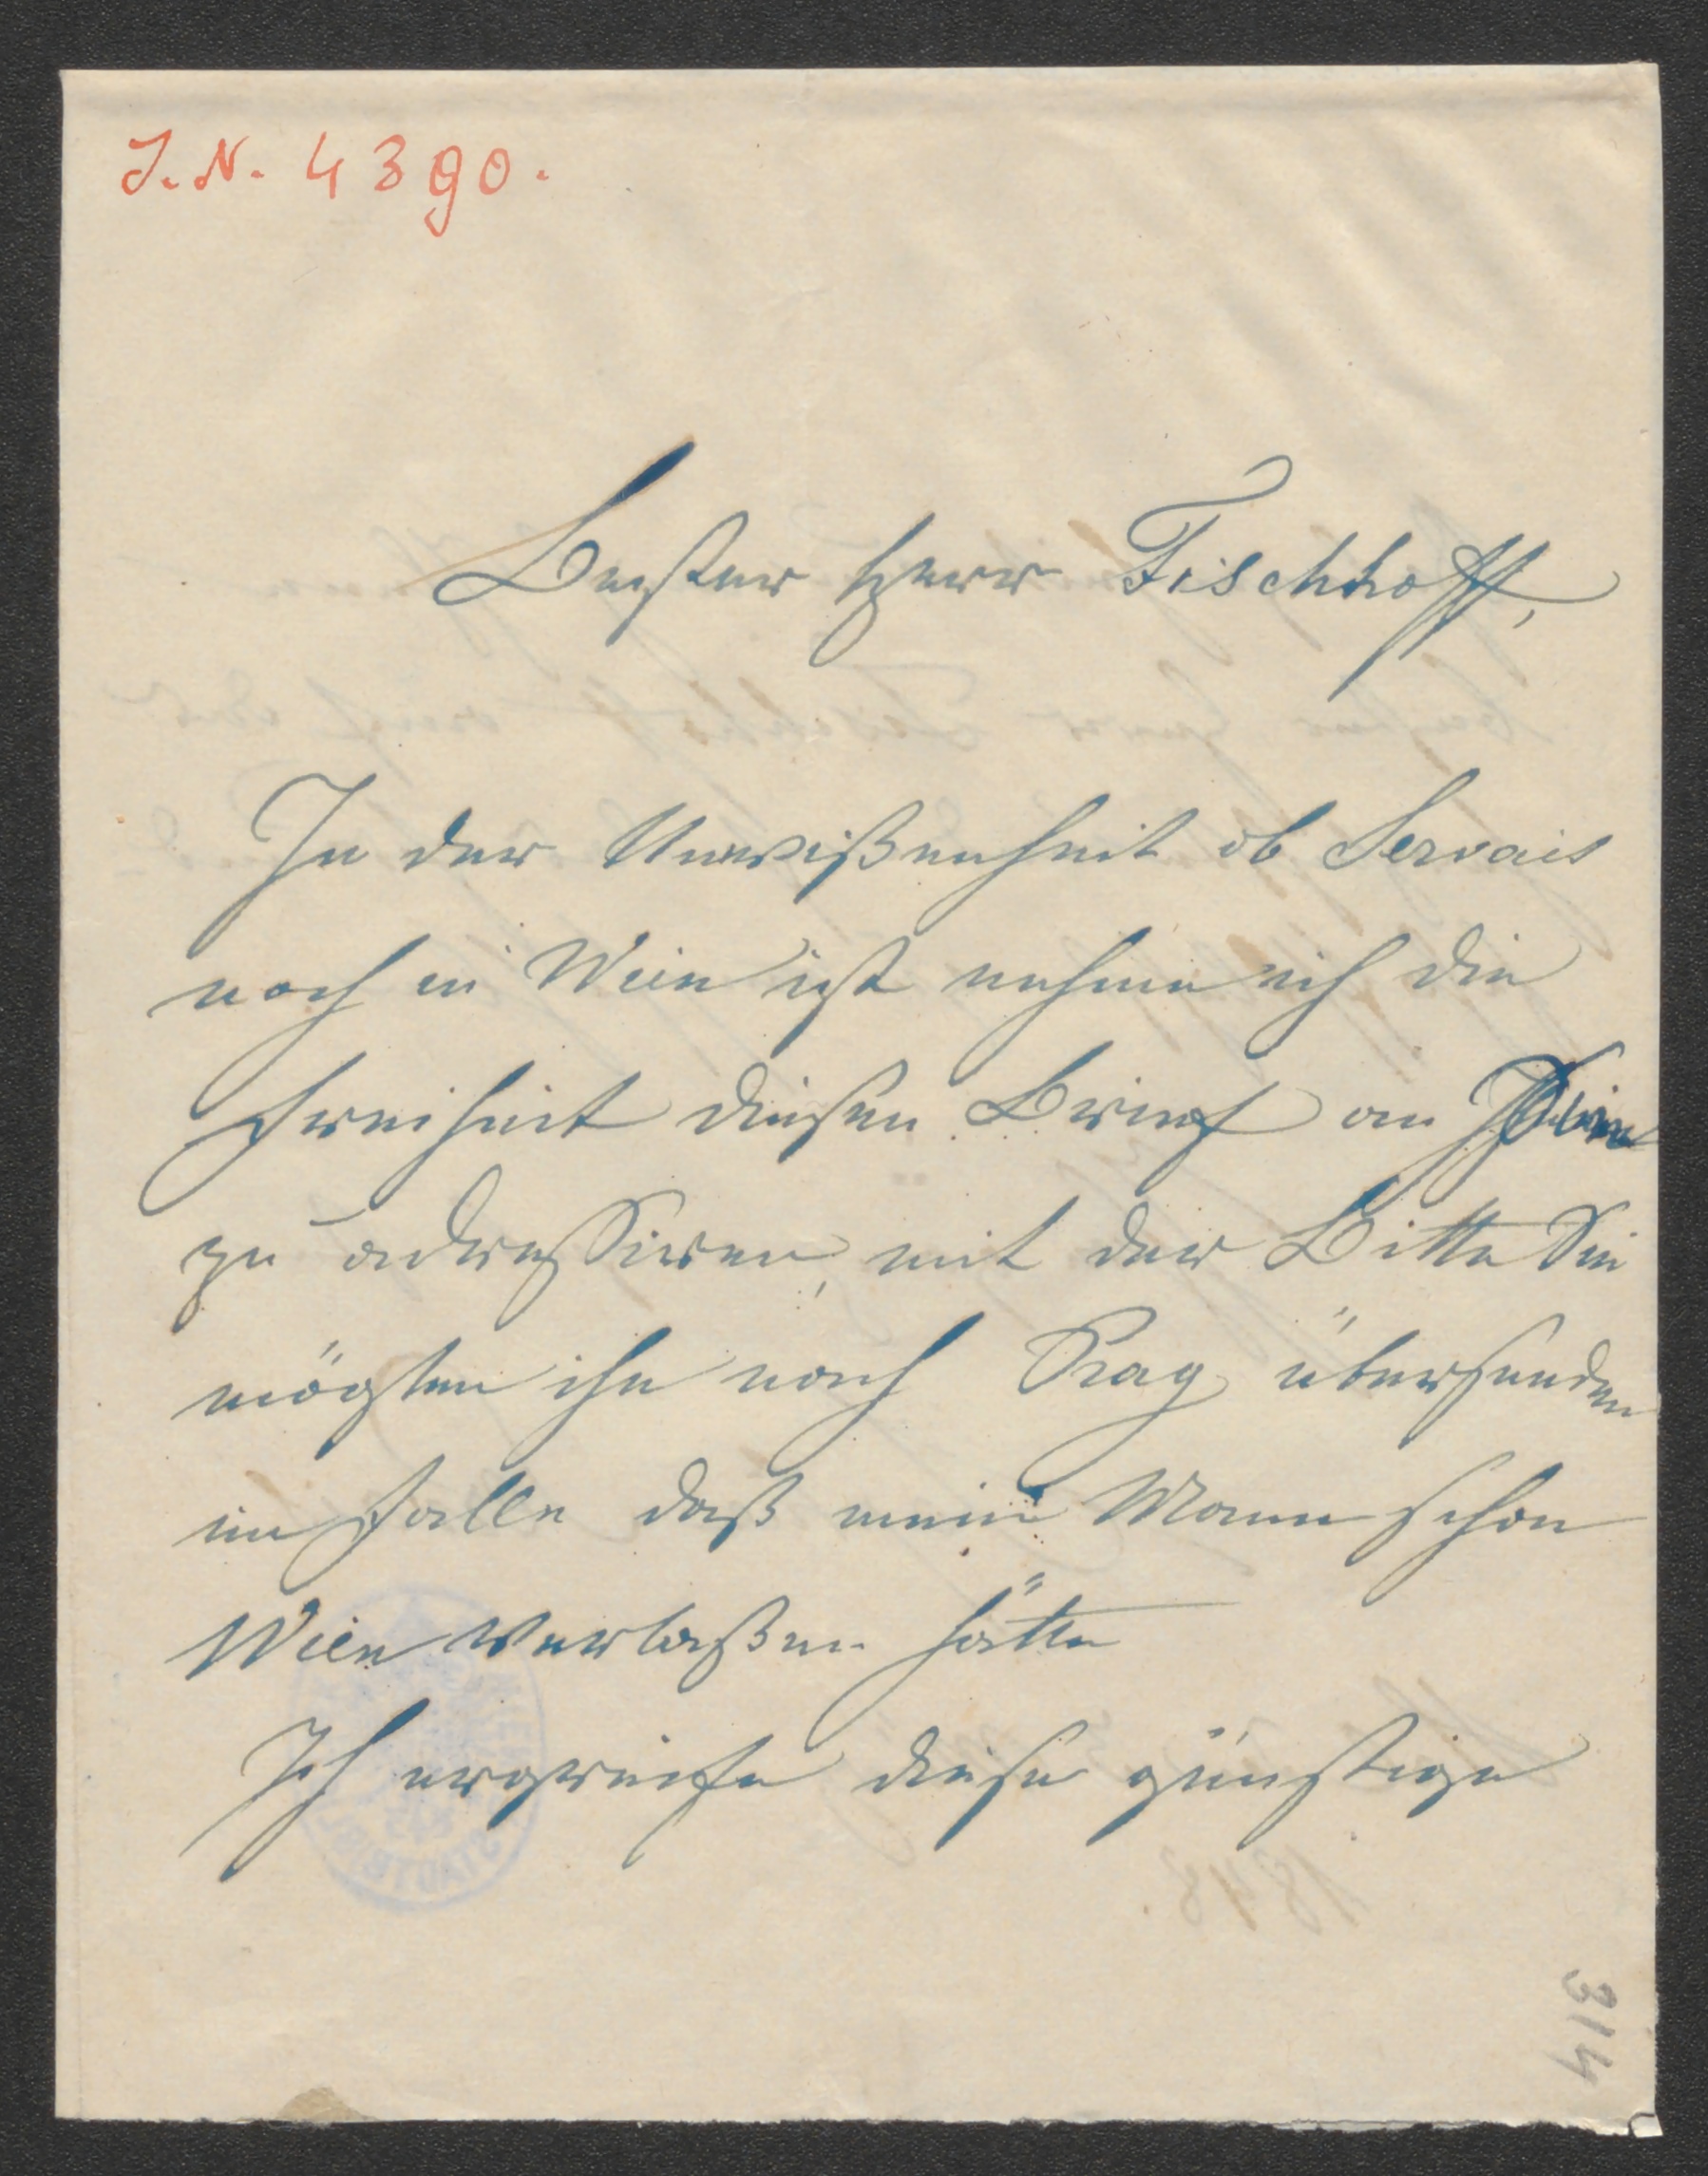 J. N. 4390.
Bester Herr Fischhoff,
In der Unwißenheit ob Servais
noch in Wien ist nehme ich die
Freiheit diesen Brief an
zu adressiren, mit der Bitte Sie
mögten ihn nach Prag übersenden
im Falle daß mein Mann schon
Wien verlaßen hätte
Ich ergreife diese günstige
314